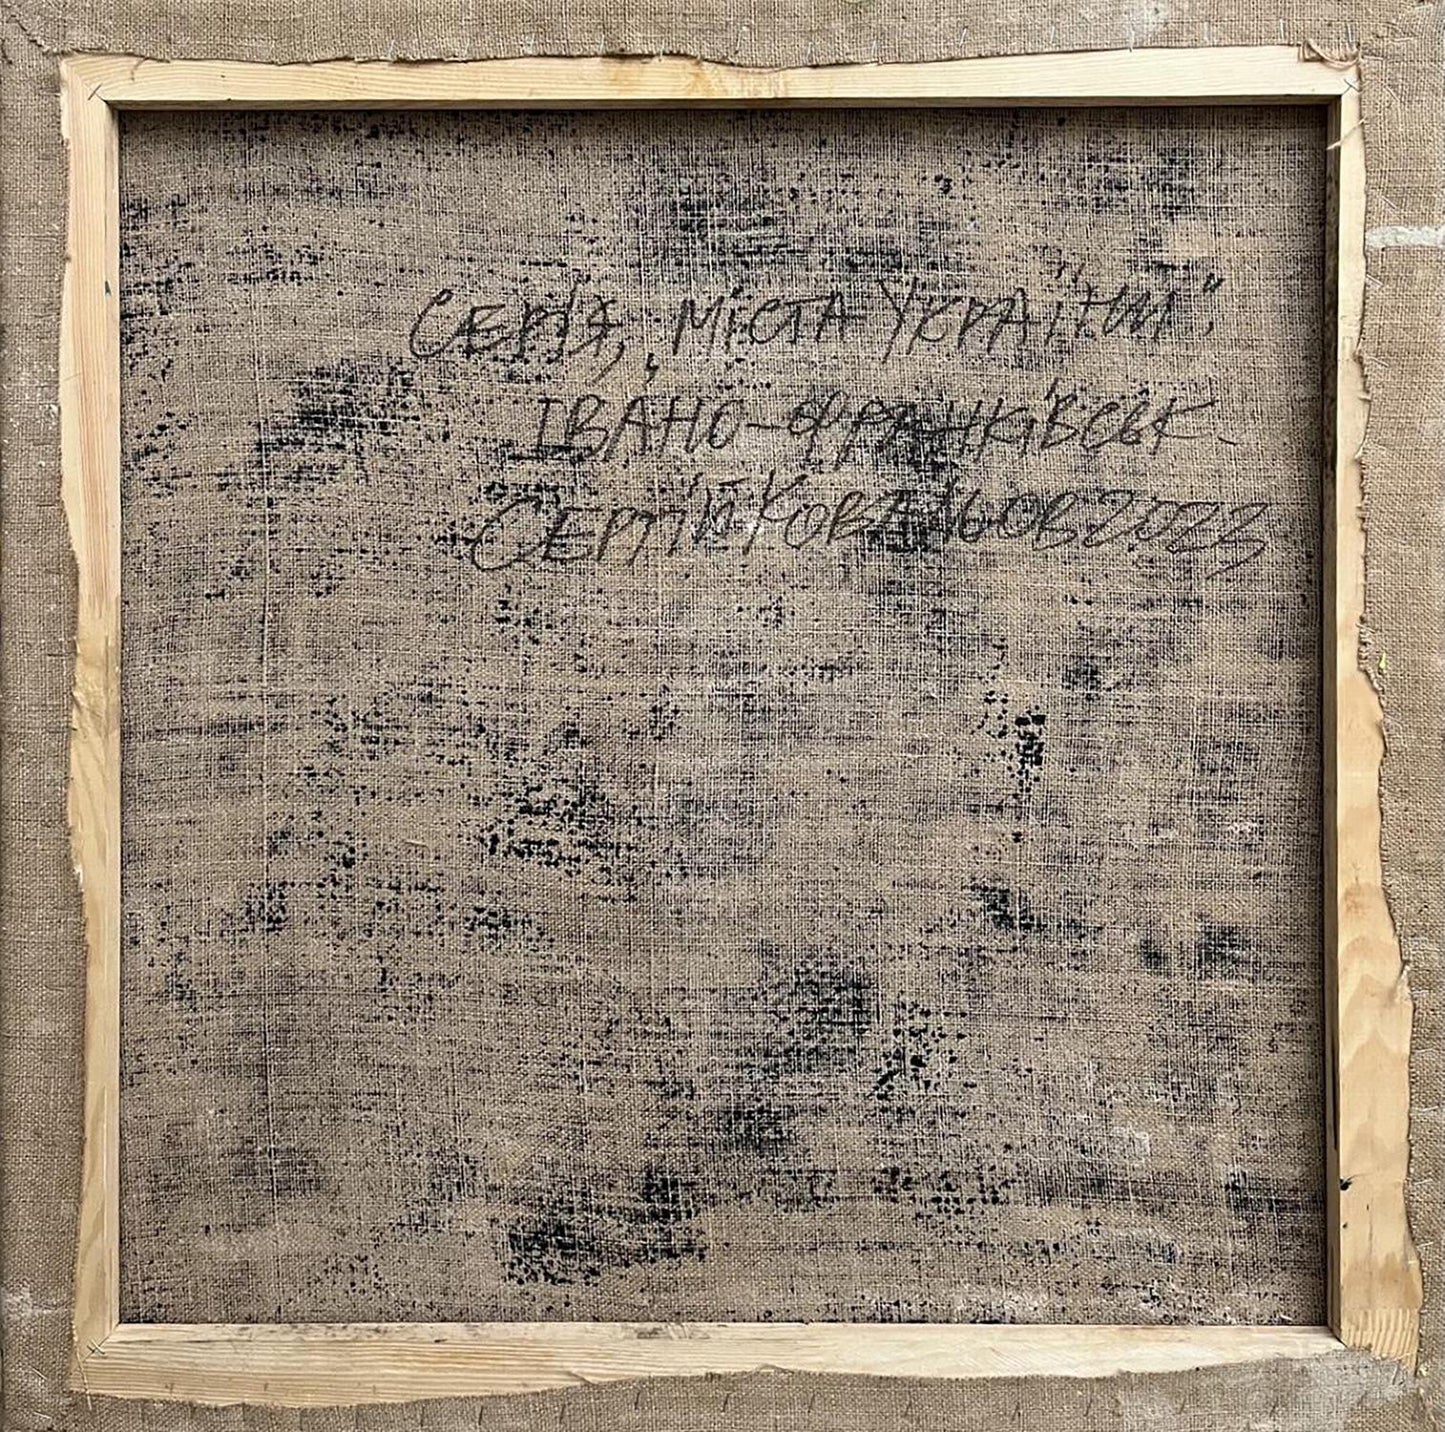 Серія, „Міста України".
Івано-Франківськ.
Сергій Ковальов 2023